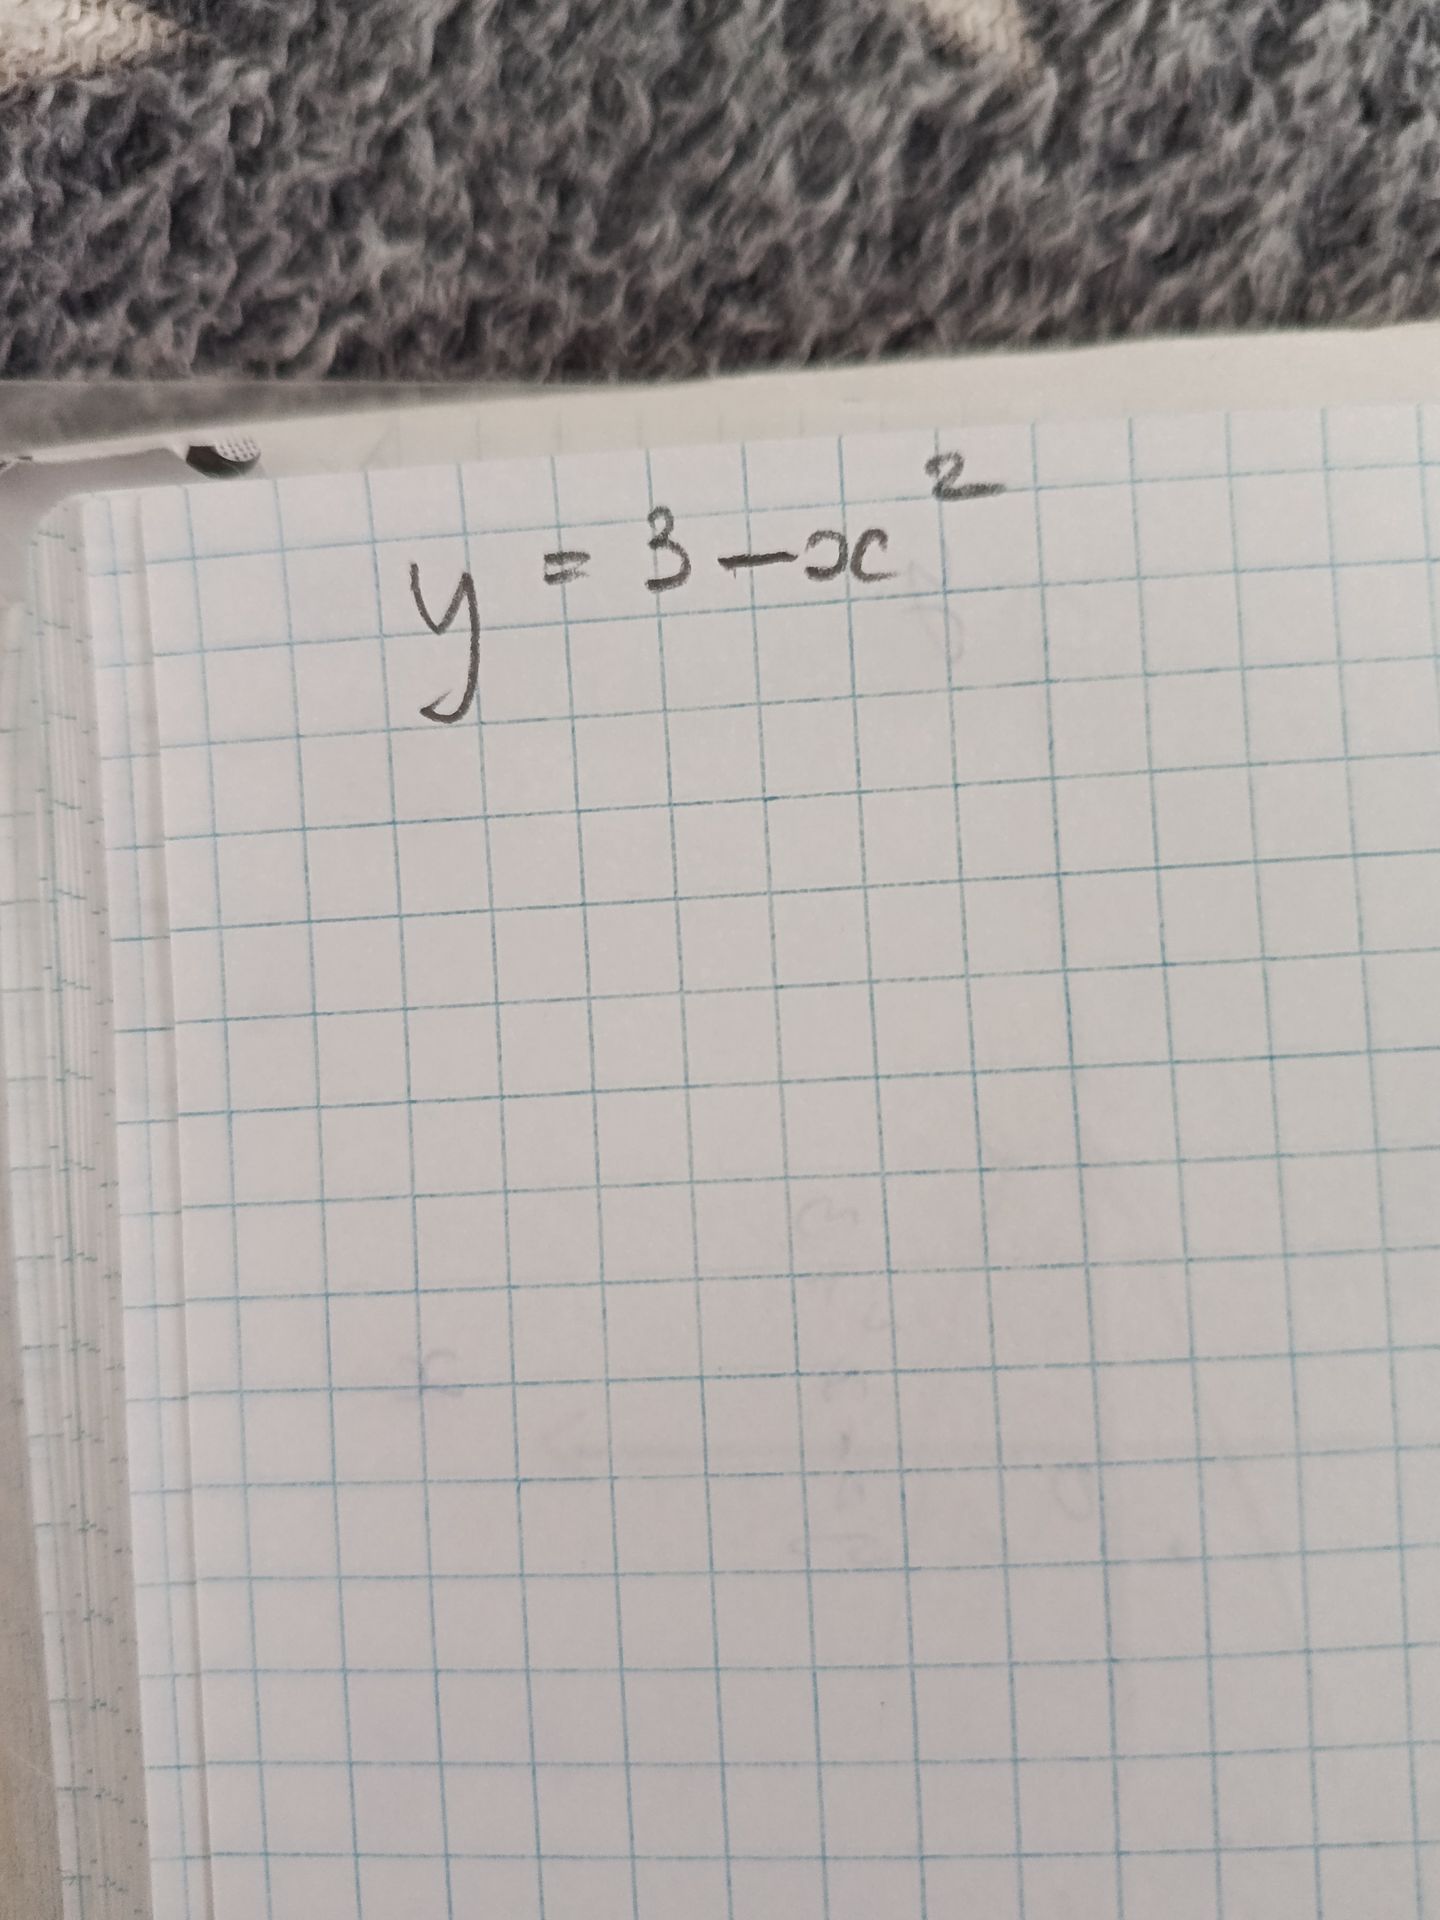 y = 3 - x²